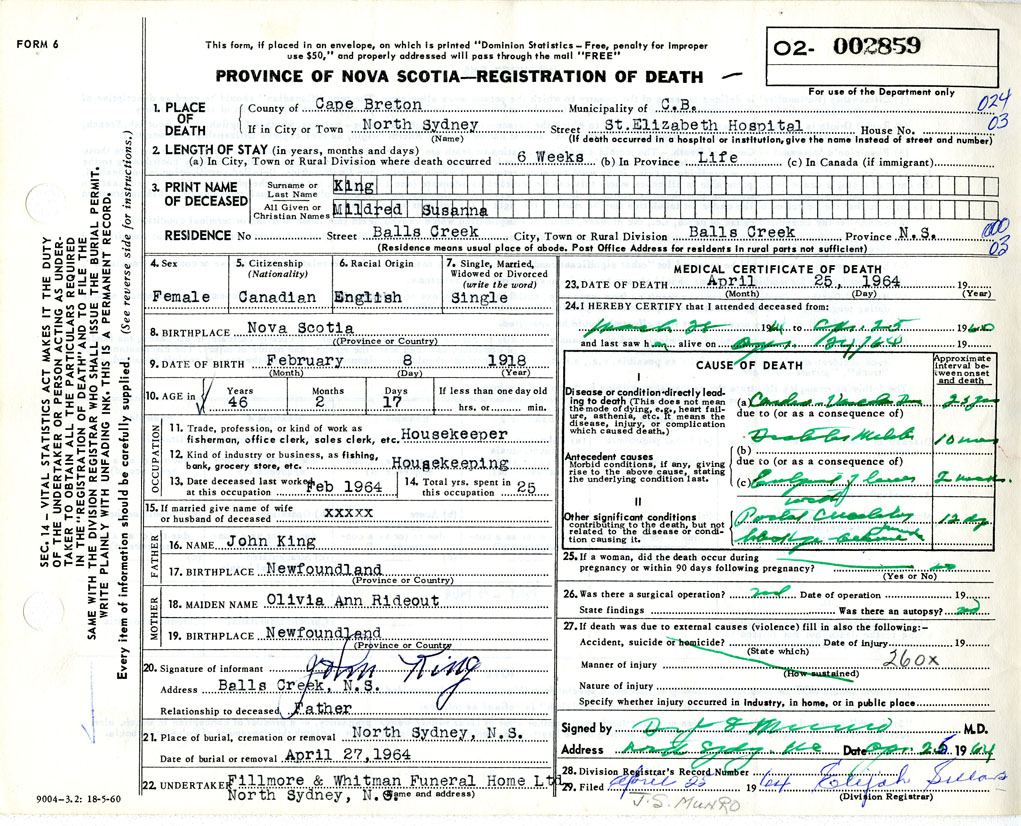 FORM 6
This form, if placed in an envelope, on which is printed "Dominion Statistics – Free, penalty for improper
use $50," and properly addressed will pass through the mail "FREE"
02- 002859
PROVINCE OF NOVA SCOTIA—REGISTRATION OF DEATH
For use of the Department only
024
03
1. PLACE OF DEATH
County of Cape Breton Municipality of C.B.
If in City or Town North Sydney Street St.Elizabeth Hospital House No.
(Name) (If death occurred in a hospital or institution, give the name instead of street and number)
2. LENGTH OF STAY (in years, months and days)
(a) In City, Town or Rural Division where death occurred 6 Weeks (b) In Province Life (c) In Canada (if immigrant)
3. PRINT NAME OF DECEASED
Surname or Last Name King
All Given or Christian Names Mildred Susanna
RESIDENCE No Street Balls Creek City, Town or Rural Division Balls Creek Province N.S.
(Residence means usual place of abode. Post Office Address for residents in rural parts not sufficient)
000
03
4. Sex
Female
5. Citizenship
(Nationality)
Canadian
6. Racial Origin
English
7. Single, Married,
Widowed or Divorced
(write the word)
Single
8. BIRTHPLACE Nova Scotia
(Province or Country)
9. DATE OF BIRTH February 8 1918
(Month) (Day) (Year)
10. AGE in Years Months Days If less than one day old
46 2 17 hrs. or min.
OCCUPATION
11. Trade, profession, or kind of work as
fisherman, office clerk, sales clerk, etc. Housekeeper
12. Kind of industry or business, as fishing,
bank, grocery store, etc. Housekeeping
13. Date deceased last worked
at this occupation Feb 1964
14. Total yrs. spent in
this occupation 25
15. If married give name of wife
or husband of deceased xxxxx
FATHER
16. NAME John King
17. BIRTHPLACE Newfoundland
(Province or Country)
MOTHER
18. MAIDEN NAME Olivia Ann Rideout
19. BIRTHPLACE Newfoundland
(Province or Country)
20. Signature of informant John King
Address Balls Creek, N.S.
Relationship to deceased Father
21. Place of burial, cremation or removal North Sydney, N.S.
Date of burial or removal April 27,1964
22. UNDERTAKER Fillmore & Whitman Funeral Home Ltd
North Sydney, N.S.
(Name and address)
MEDICAL CERTIFICATE OF DEATH
23. DATE OF DEATH April 25, 1964 19
(Month) (Day) (Year)
24. I HEREBY CERTIFY that I attended deceased from:
March 25 1964 to Apr. 25 19
and last saw h alive on 19
CAUSE OF DEATH
Approximate
interval be-
tween onset
and death
I
Disease or condition directly lead-
ing to death (This does not mean
the mode of dying, e.g., heart fail-
ure, asthenia, etc. It means the
disease, injury, or complication
which caused death.)
(a)
due to (or as a consequence of)
Antecedent causes
Morbid conditions, if any, giving
rise to the above cause, stating
the underlying condition last.
(b) Diabetes 10
due to (or as a consequence of)
(c)
II
Other significant conditions
contributing to the death, but not
related to the disease or condi-
tion causing it.
12
25. If a woman, did the death occur during
pregnancy or within 90 days following pregnancy? no
(Yes or No)
26. Was there a surgical operation? Date of operation 19
State findings Was there an autopsy?
27. If death was due to external causes (violence) fill in also the following:–
Accident, suicide or homicide? Date of injury 19
(State which)
260x
Manner of injury
(How sustained)
Nature of injury
Specify whether injury occurred in Industry, in home, or in public place
Signed by Munro M.D.
Address North Sydney N.S. Date Apr. 25 1964
28. Division Registrar's Record Number
29. Filed April 25 1964 Elijah
(Division Registrar)
J.S. MUNRO
9004-3.2: 18-5-60
SEC. 14 – VITAL STATISTICS ACT MAKES IT THE DUTY
OF THE UNDERTAKER OR PERSON ACTING AS UNDER-
TAKER TO OBTAIN ALL THE PARTICULARS REQUIRED
IN THE "REGISTRATION OF DEATH" AND TO FILE THE
SAME WITH THE DIVISION REGISTRAR WHO SHALL ISSUE THE BURIAL PERMIT.
WRITE PLAINLY WITH UNFADING INK. THIS IS A PERMANENT RECORD.
Every item of information should be carefully supplied. (See reverse side for instructions.)